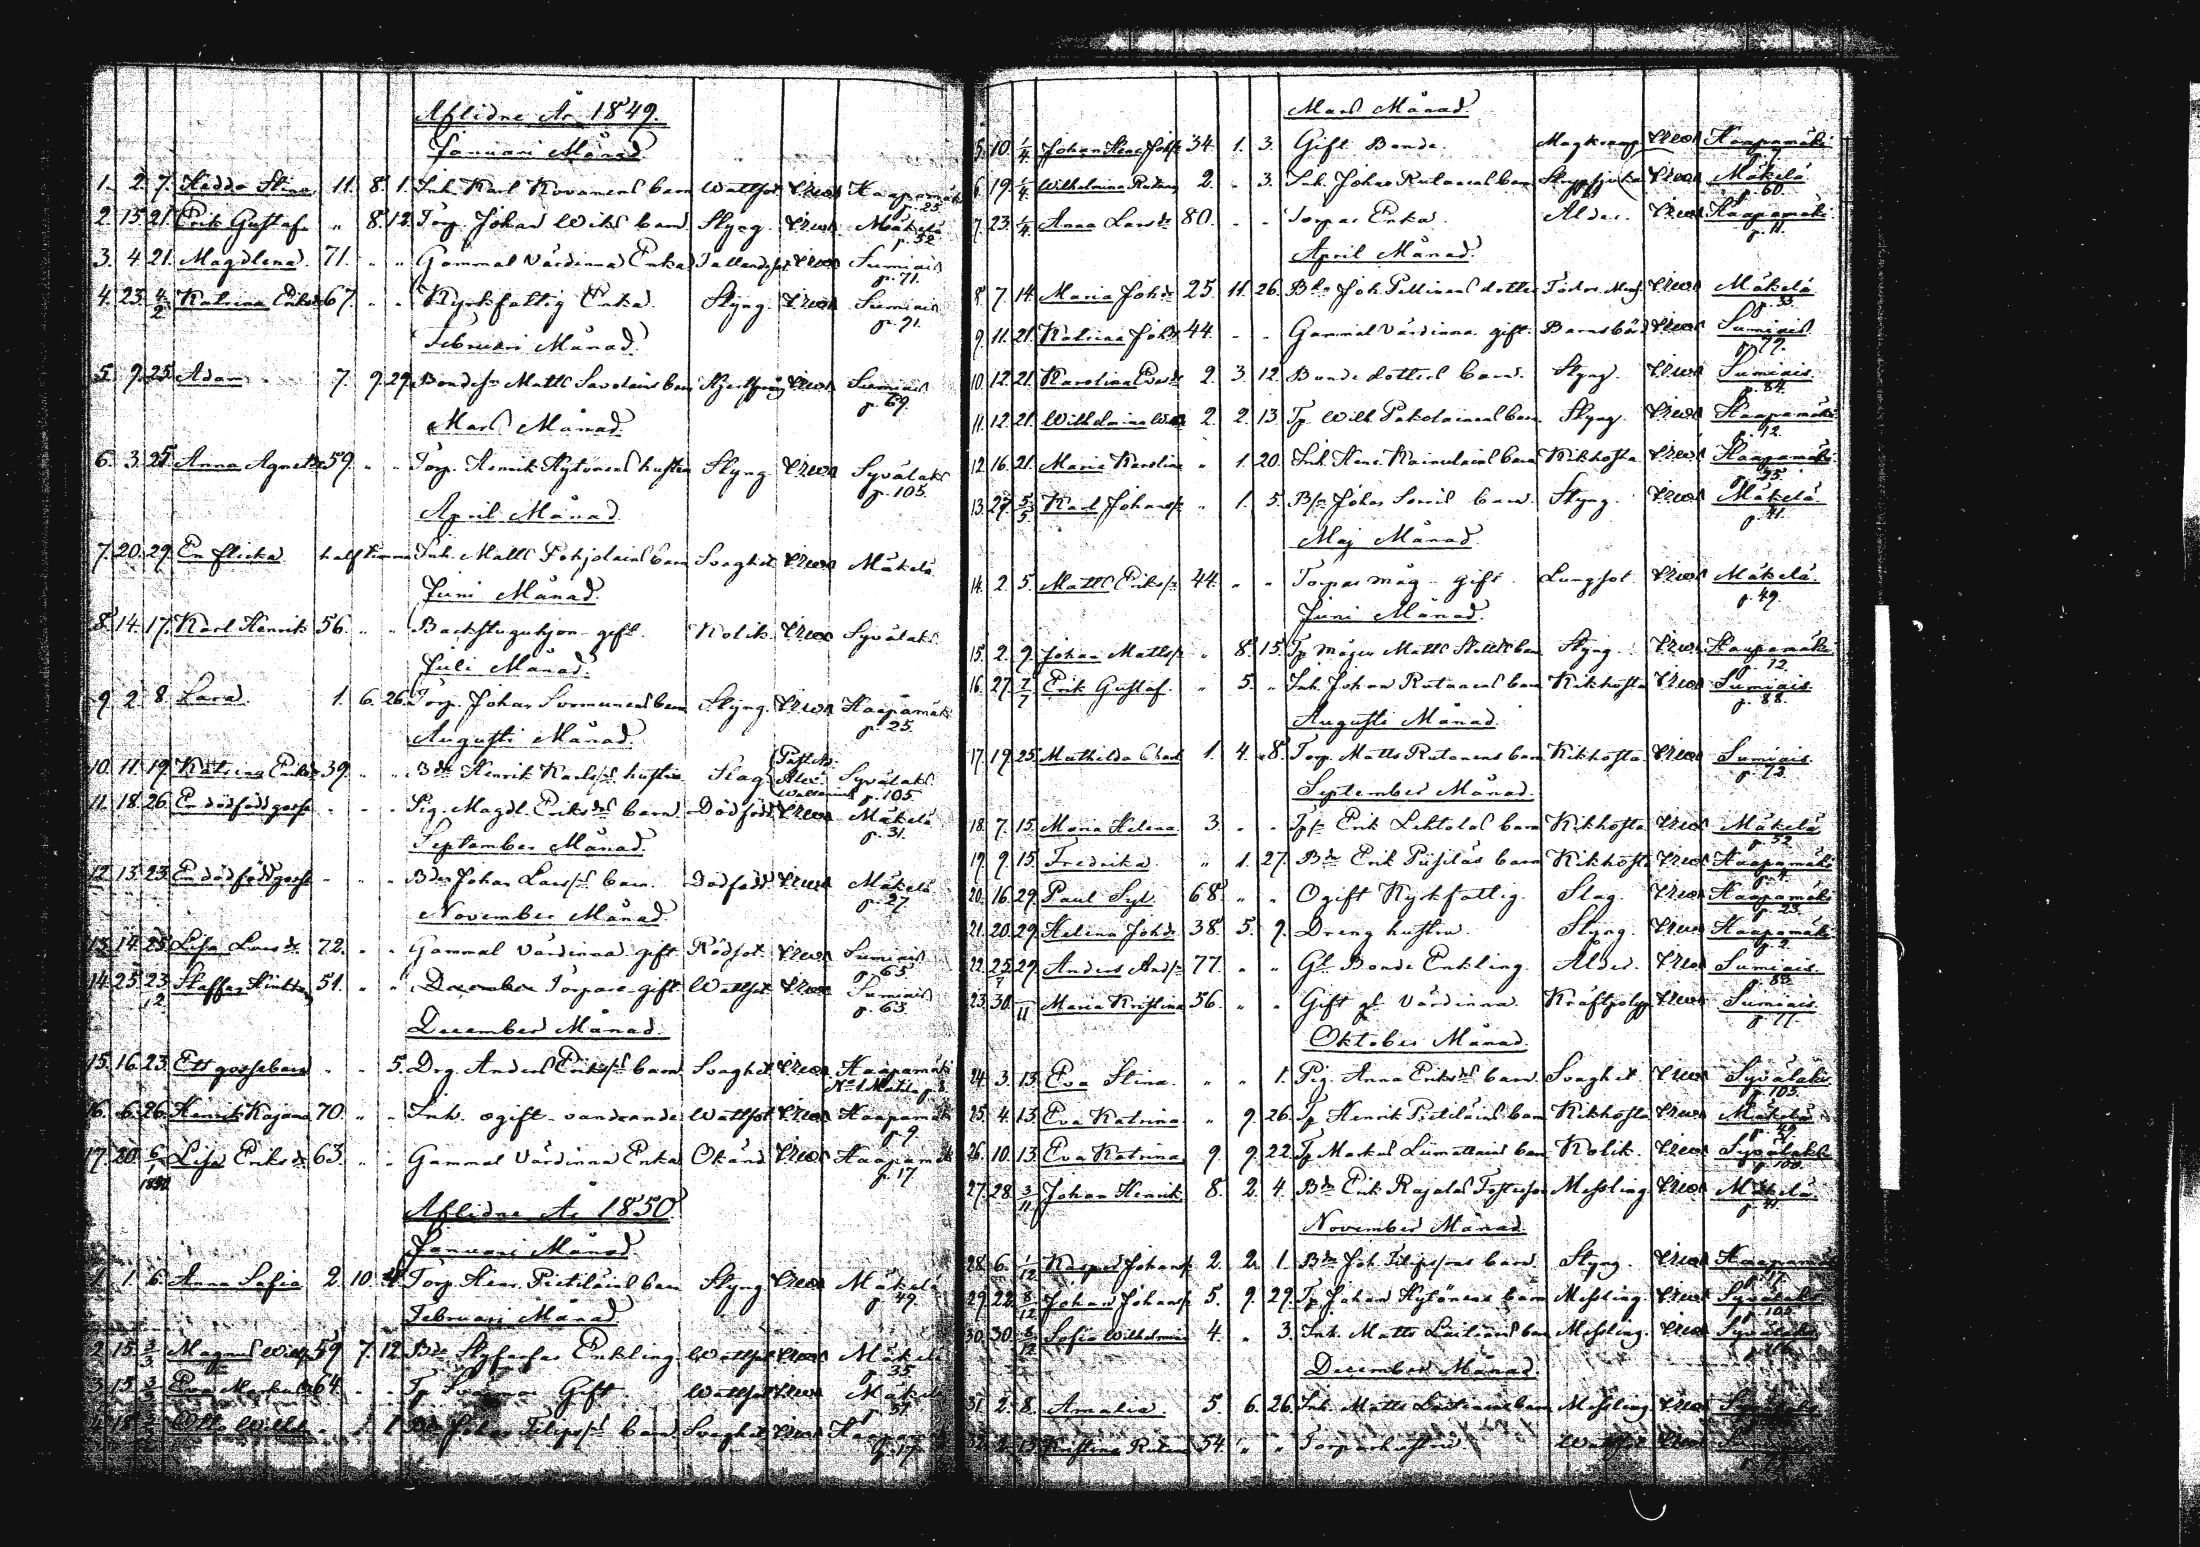 Aflidne År 1849.
Januari Månad.
1. 2. 7. Hedda Stina 11. 8. 1. Inh. Karl Kovanens barn Wattsot Haapamäki p. 25
2. 15. 21. Erik Gustaf " 8. 12. Torp. Johan Wiks barn Styng Mäkelä p. 52
3. 4. 21. Magdlena. 71. " " Gammal värdinna Enka Sumiais p. 71.
4. 23. 4/2 Katrina Eriksdr 67. " " Kyrkfattig Enka. Styng. Sumiais p. 91.
Februari Månad.
5. 9. 25. Adam 7. 9. 29. Bondes Matts Savolains barn Sumiais p. 69.
Mars Månad.
6. 3. 25. Anna Agneta 59. " " Torp. Henrik Hytönens hustru Styng Syvälaks p. 105.
April Månad
7. 20. 29. En flicka half timma Inh. Matts Pohjolains barn Svaghet Mäkelä
Juni Månad.
8. 14. 17. Karl Henrik 56. " " Backstuguhjon gift. Kolik. Syvälaks
Juli Månad.
9. 2. 8. Lars. 1. 6. 26. Torp. Johan Sormunens barn Styng. Haapamäki p. 25.
Augusti Månad.
10. 11. 19. Katrina Eriksdr 39. " " Bde Henrik Karlss hustru Slag Syvälaks p. 105.
11. 18. 26. En dödfödd gosse " " " Pig. Magdl. Eriksdrs barn Dödfödd Mäkelä p. 31.
September Månad.
12. 13. 23. En dödfödd gosse " " " Bde Johan Larss barn. Dödfödd. Mäkelä p. 27
November Månad.
13. 14. 25. Lisa Larsdr. 72. " " Gammal värdinna gift Rödsot. Sumiais p. 65
14. 25. 23/12 Staffan 51. " " Torpare gift Wattsot Sumiais p. 63.
December Månad.
15. 16. 23. Ett gossebarn " " 5. Drg. Anders Erikss barn Svaghet Haapamäki
16. 6. 26. Henrik Kajan 70. " " Inh. ogift vandrande Wattsot Haapamäki p. 9.
17. 20. 6/1 1850 Lisa Eriksdr 63. " " Gammal värdinna Enka Okänd. Haapamäki p. 17
Aflidne År 1850.
Januari Månad.
1. 1. 6. Anna Sofia 2. 10. Torp. Henr. Pietiläins barn Styng Mäkelä p. 49.
Februari Månad.
2. 15. 3/3 Magnus 59 7. 12. Bde Enkling. Wattsot Mäkelä p. 35.
3. 15. Eva 64. " " Tp. Gift. Wattsot Mäkelä p. 57.
Otto Wilhelm Bde Johan Filipss barn Svaghet Haapamäki p. 17.
Mars Månad.
5. 10. 1/4. Johan Henr. Johss 34. 1. 3. Gift Bonde. Haapamäki
6. 19. 1/4. Wilhelmina 2. " 3. Inh. Johan Rutanens barn Mäkelä p. 60.
7. 23. 1/4. Anna Larsdr 80. " " Torpar Enka. Ålder. Haapamäki p. 11.
April Månad.
8. 7. 14. Maria Johdr 25. 11. 26. Bde Joh. Pellinens dotter Mäkelä p. 33.
9. 11. 21. Katrina Johdr 44. " " Gammal värdinna gift. Barnsbörd Sumiais p. 79.
10. 12. 21. Karolina 2. 3. 12. Bonde dotters barn. Styng. Sumiais. p. 84.
11. 12. 21. Wilhelmina 2. 2. 13. Tp. Wilh. Pakolainens barn Styng. Haapamäki p. 12.
12. 16. 21. Maria Karolina " 1. 20. Inh. Henr. Kainulains barn Kikhosta Haapamäki p. 25.
13. 27. 5/5 Karl Johanss " 1. 5. Johan barn Styng. Mäkelä p. 41.
Maj Månad.
14. 2. 5. Matts Erikss 44. " " Torpar måg gift. Lungsot. Mäkelä. p. 49.
Juni Månad.
15. 2. 9. Johan Mattss " 8. 15. Tp mågen Matts barn Styng. Haapamäki p. 12.
16. 27. 7/7 Erik Gustaf. " 5. " Inh. Johan Rutanens barn Kikhosta Sumiais. p. 88.
Augusti Månad.
17. 19. 25. Mathilda Charl. 1. 4. 8. Torp. Matts Rutanens barn Kikhosta Sumiais. p. 73.
September Månad.
18. 7. 15. Maria Helena 3. " " Erik Lehtolas barn Kikhosta Mäkelä p. 52
19. 9. 15. Fredrika " 1. 27. Bde Erik barn Kikhosta Haapamäki p. 4.
20. 16. 29. Paul Syl. 68. " " Ogift Kyrkfattig. Slag. Haapamäki p. 23.
21. 20. 29. Helena Johdr 38. 5. 9. Dreng hustru. Styng. Haapamäki p. 2.
22. 25. 29. Anders Andss 77. " " Gl. Bonde Enkling. Ålder. Sumiais. p. 83.
23. 30. Maria Kristina 56. " " Gift gl. värdinna. Sumiais. p. 77.
Oktober Månad.
24. 3. 13. Eva Stina. " " 1. Pig. Anna Eriksdrs barn Svaghet. Syvälaks p. 105.
25. 4. 13. Eva Katrina " 9. 26. Tp Henrik Pietiläins barn Kikhosta Mäkelä p. 49
26. 10. 13. Eva Katrina 9. 9. 22. Tp Markus Liimattains barn Kolik. Syvälaks p. 100.
27. 28. 3/11 Johan Henrik 8. 2. 4. Bde Erik Rajalas Fosterson Messling. Mäkelä p. 41.
November Månad.
28. 6. 1/12 Kasper Johanss 2. 2. 1. Bde Joh. Filipssons barn Styng. Haapamäki p. 17.
29. 22. 8/12 Johan Johanss 5. 9. 29. Tp Johan Hytönens barn Messling. Syvälaks
30. 30. 8/12 Sofia Wilhelmina 4. " 3. Inh. Matts Laitiains barn Messling. Syvälaks
December Månad.
31. 2. 8. Amalia. 5. 6. 26. Inh. Matts Laitiains barn Messling
32. 2. 13. Kristina 54. " " Torparhustru Wattsot